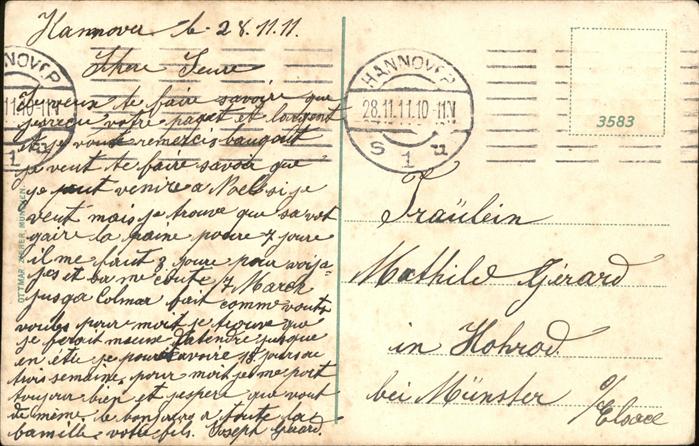 Hannover le 28.11.11.
Chere Seure
Je veux te faire savoire que
j'ai reçu votre paquet et l'argent
et je vous remercis baugout
je veut te faire savoir que
je peut venire a Noel si je
veut mais je trouve que sa vot
gaire la paine poure 7 joure
il me faut 3 joure pour voija-
jes et sa me coute 7 Marck
jusqa Colmar fait comme vous
voules pure moit je trouve que
je feroit mieux d'atendre jusque
en été je pourat avoire 18 jours ou
trois semaine. pour moit je me port
toujour bien et j'espere que vout
de même. le bonjour a toute la
famille votre fils. Joseph Gérard.
HANNOVER
28.11.11.10-11.V
S 1 u
3583
Fräulein
Mathild Gérard
in Hohrod
bei Münster
O/Elsace
OTTMAR ZIEHER, MÜNCHEN